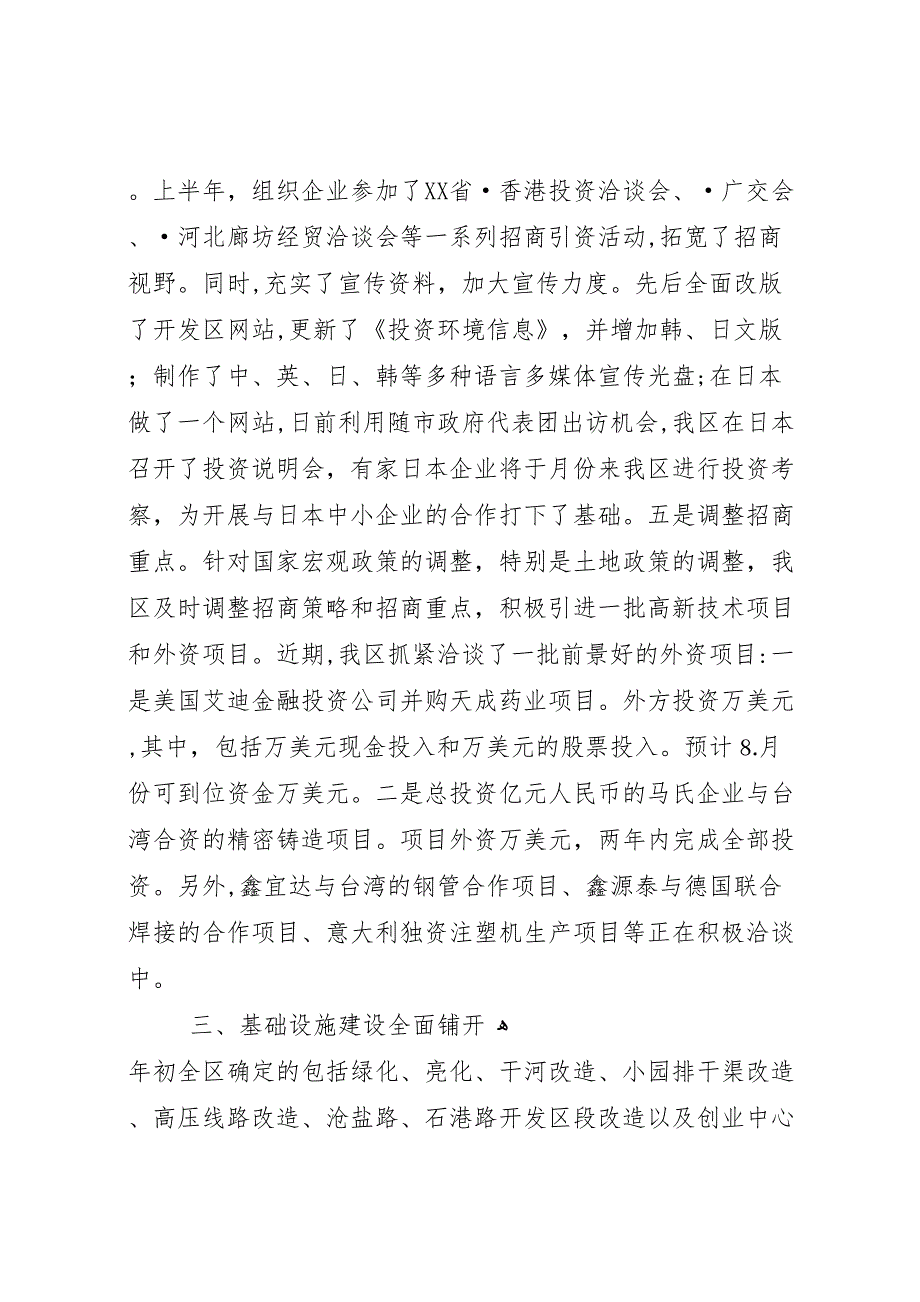 。上半年，组织企业参加了XX省·香港投资洽谈会、·广交会
、·河北廊坊经贸洽谈会等一系列招商引资活动,拓宽了招商
视野。同时,充实了宣传资料，加大宣传力度。先后全面改版
了开发区网站,更新了《投资环境信息》，并增加韩、日文版
；制作了中、英、日、韩等多种语言多媒体宣传光盘;在日本
做了一个网站,日前利用随市政府代表团出访机会,我区在日本
召开了投资说明会，有家日本企业将于月份来我区进行投资考
察，为开展与日本中小企业的合作打下了基础。五是调整招商
重点。针对国家宏观政策的调整，特别是土地政策的调整，我
区及时调整招商策略和招商重点，积极引进一批高新技术项目
和外资项目。近期,我区抓紧洽谈了一批前景好的外资项目:一
是美国艾迪金融投资公司并购天成药业项目。外方投资万美元
,其中，包括万美元现金投入和万美元的股票投入。预计8.月
份可到位资金万美元。二是总投资亿元人民币的马氏企业与台
湾合资的精密铸造项目。项目外资万美元，两年内完成全部投
资。另外,鑫宜达与台湾的钢管合作项目、鑫源泰与德国联合
焊接的合作项目、意大利独资注塑机生产项目等正在积极洽谈
中。
三、基础设施建设全面铺开 ﻫ
年初全区确定的包括绿化、亮化、干河改造、小园排干渠改造
、高压线路改造、沧盐路、石港路开发区段改造以及创业中心